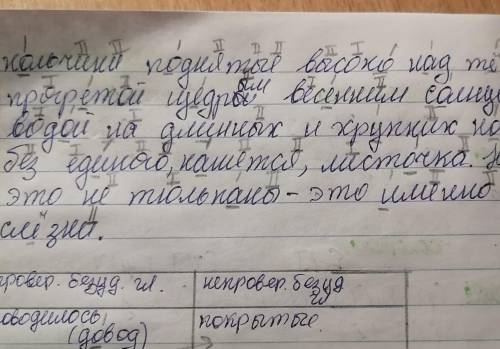 кольчики поднятые высоко над те
прогретой щедрым весенним солнце
водой на длинных и хрупких но
без единого, кажется, листочка. Н
это не тюльпаны - это именно
слёзна.
провер. безуд. гл.	непровер. безуд гл
оводилось (довод)	покрытые.